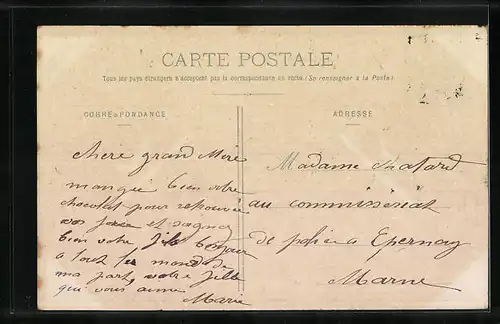 CARTE POSTALE
Tous les pays étrangers n'acceptent pas la correspondance au recto (Se renseigner à la Poste)
CORRESPONDANCE
ADRESSE
chere grand Mère
mangé bien votre
chocolat pour retrouver
vos force et soignez
bien votre fils bonjour
a tout le monde de
ma part, votre fille
qui vous aime
Marie
Madame Chatard
au commisseriat
de police a Epernay
Marne